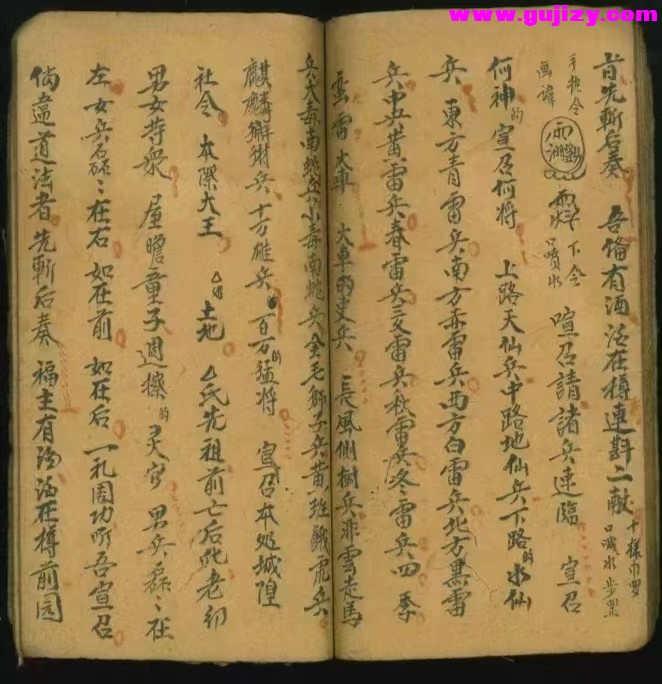 www.gujizy.com
首先斬后奏 吾俻有酒酒在樽連斟二献 十様巾要 口噴水步罡
手执令 画諱 下令 口噴水 喧召請諸兵速臨 宣召
何神的宣召何将 上路天仙兵中路地仙兵下路的水仙
兵 東方青雷兵南方赤雷兵西方白雷兵北方黑雷
兵中央黄雷兵春雷兵夏雷兵秋雷兵冬雷兵四季
雲雷火車 火車的吏兵 長風倒樹兵非雲走馬
兵大毒南蛇兵小毒南蛇兵金毛獅子兵黄班餓虎兵
麒麟獬兵十万雄兵百万的猛将 宣召本処城隍
社令 本際大王 △処土地 △氏先祖前亡后化老幼
男女等衆 屋簷童子週樑的灵官 男兵磊々在
左女兵磊々在右 如在前 如在后 一礼功听吾宣召
倘違道法者先斬后奏 福主有酒酒在樽前园